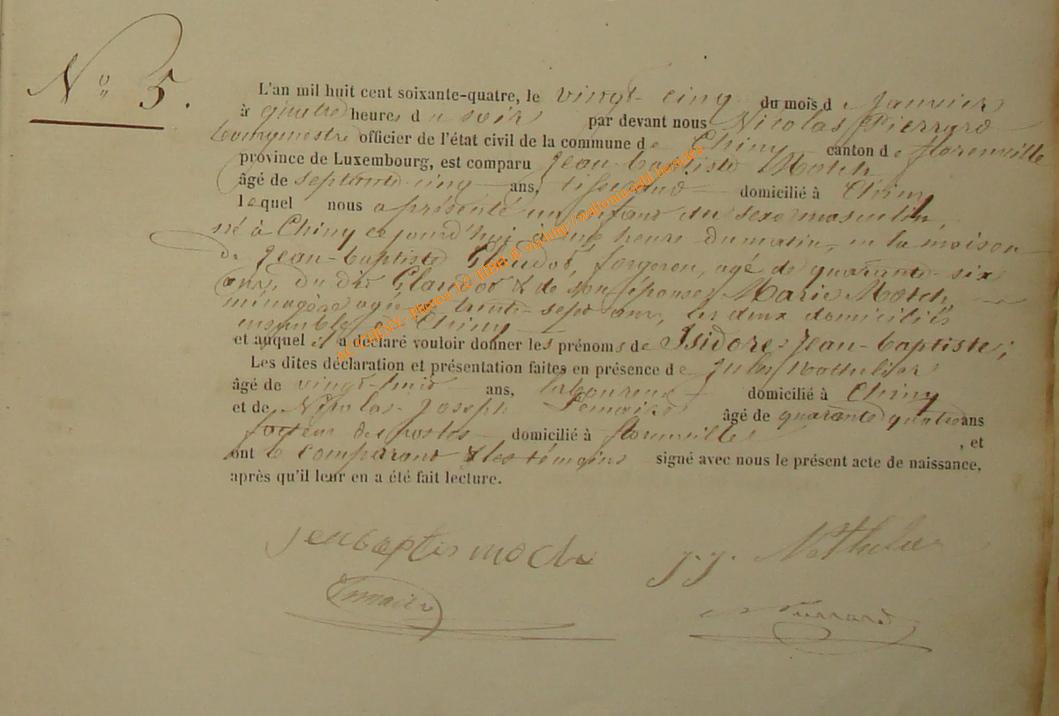 N° 5.
L'an mil huit cent soixante-quatre, le vingt-cinq du mois d e Janvier
à quatre heures d u soir par devant nous Nicolas Pierrard
bourgmestre officier de l'état civil de la commune d e Chiny canton d e florenville
province de Luxembourg, est comparu Jean-baptiste Motch
âgé de septante-cinq ans, tisserand domicilié à Chiny
lequel nous a présenté un enfant du sexe masculin,
né à Chiny ce jourd'hui, à une heure du matin, en la maison
de Jean-baptiste Claudot, forgeron, agé de quarante-six
ans, du dit Claudot & de son épouse Marie Motch,
ménagère agée trente-sept ans, les deux domiciliés
ensemble à Chiny
et auquel il a déclaré vouloir donner les prénoms de Isidore Jean-baptiste;
Les dites déclaration et présentation faites en présence d e Jules
âgé de vingt-huit ans, laboureur domicilié à Chiny
et de Nicolas-Joseph Lemaire âgé de quarante quatre ans
facteur des postes domicilié à florenville , et
ont le comparant & les témoins signé avec nous le présent acte de naissance,
après qu'il leur en a été fait lecture.
jeanbaptis moch j. j.
Lemaire Pierrard